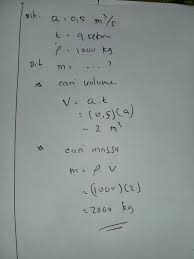 Dik: Q = 0,5 m³/s
t = 4 sekon
ρ = 1000 kg
Dit m = ..... ?
* cari volume
V = Q.t
= (0,5)(4)
= 2 m³
* cari massa
m = ρ V
= (1000)(2)
= 2000 kg